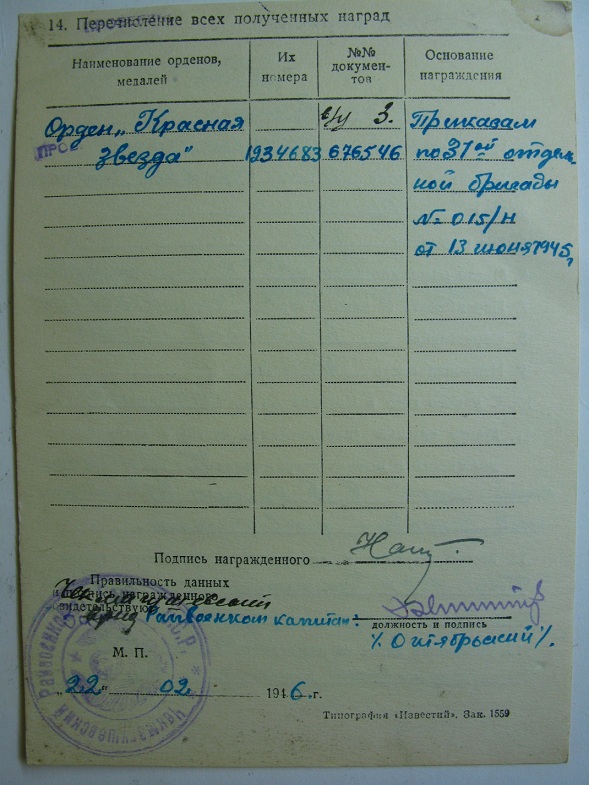 14. Перечисление всех полученных наград
Наименование орденов, медалей
Их номера
№№ документов
Основание награждения
с/ч 3.
Орден „Красная
Приказам
звезда"
1934683
676546
по 31ой отдель
ной бригады
№ 015/н
от 13 июня 1945г
Подпись награжденного
Правильность данных
и подпись награжденного
свидетельствую
Райвоенком капитан:
должность и подпись
/. Октябрьский /.
М. П.
„22" 02 1946.г.
Типография «Известий». Зак. 1559